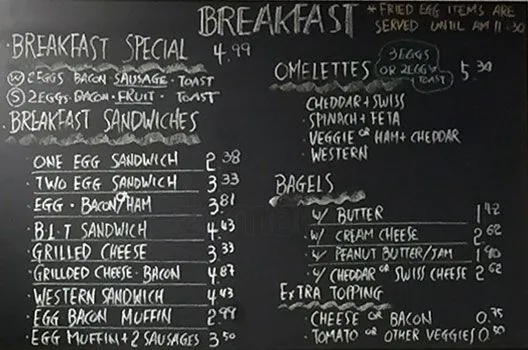 BREAKFAST
* FRIED EGG ITEMS ARE
SERVED UNTIL AM 11:30
· BREAKFAST SPECIAL 4.99
(W) 2 EGGS BACON SAUSAGE · TOAST
(S) 2 EGGS · BACON · FRUIT · TOAST
· BREAKFAST SANDWICHES
· ONE EGG SANDWICH 2 38
· TWO EGG SANDWICH 3 33
· EGG · BACON OR HAM 3 81
· B.L.T SANDWICH 4.43
· GRILLED CHEESE 3 33
· GRILLDED CHEESE · BACON 4.87
· WESTERN SANDWICH 4.43
· EGG BACON MUFFIN 2.99
· EGG MUFFIN + 2 SAUSAGES 3 50
OMELETTES 3 EGGS OR 2 EGG + TOAST 5.30
· CHEDDAR + SWISS
· SPINACH + FETA
· VEGGIE OR HAM + CHEDDAR
· WESTERN
BAGELS
· W/ BUTTER 1 42
· W/ CREAM CHEESE 2 62
· W/ PEANUT BUTTER/JAM 1 90
· W/ CHEDDAR OR SWISS CHEESE 2 62
EXTRA TOPPING
· CHEESE OR BACON 0.75
· TOMATO OR OTHER VEGGIES 0.50